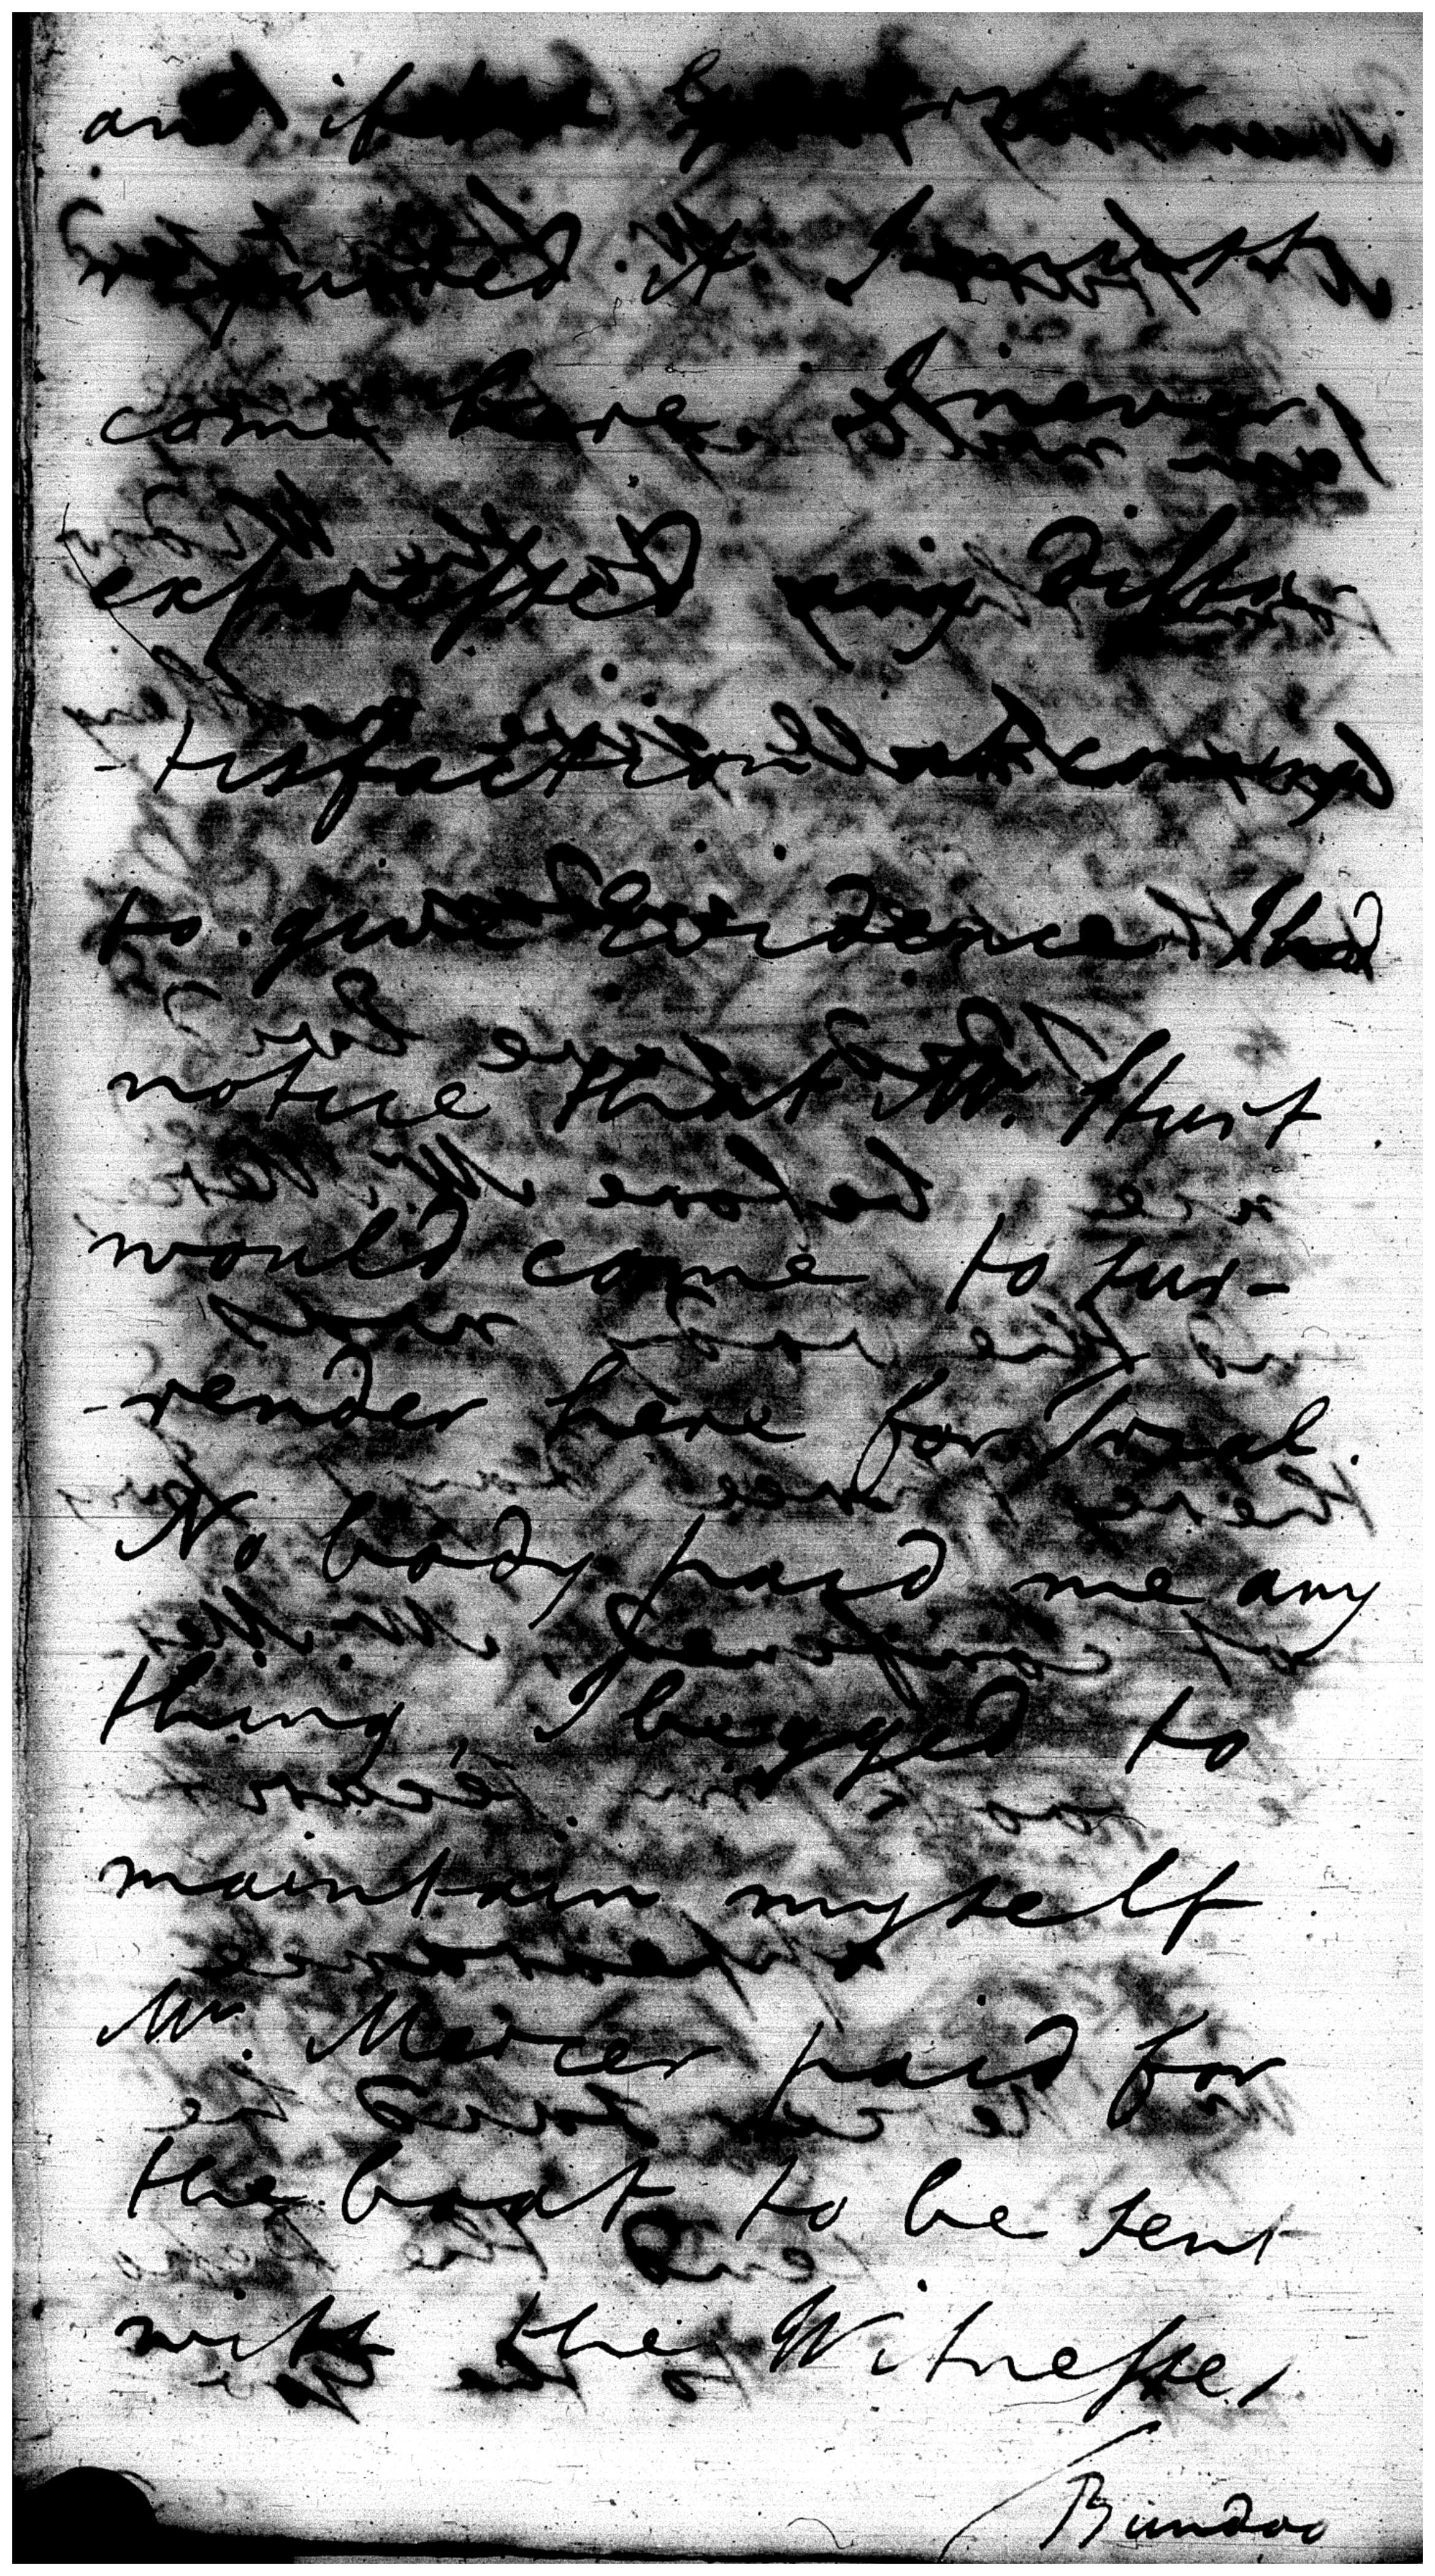 and if
required it I must
come here. I never
expressed any dissa
-tisfaction at coming
to give Evidence I had
notice that Mr. Hurst
would come to sur-
-render here for Trial.
No body paid me any
thing, I begged to
maintain myself
Mr. Mercer paid for
the boat to be sent
with the Witnesses
Bundoo